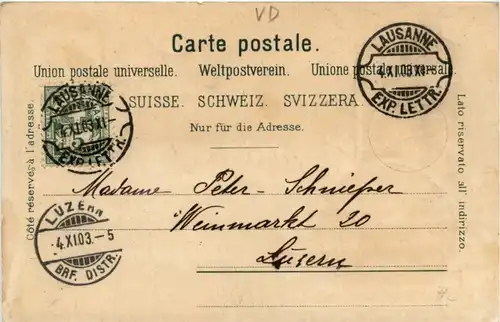 VD
Carte postale.
Union postale universelle. Weltpostverein. Unione postale universale.
SUISSE. SCHWEIZ. SVIZZERA.
Nur für die Adresse.
Côté réservé à l'adresse.
Lato riservato all' indirizzo.
LAUSANNE
4.XI.03.XI-
EXP. LETTR.
LAUSANNE
4.XI.03.XI
EXP. LETTR.
5
Madame Peter-Schnieper
Weinmarkt 20
Luzern
LUZERN
-4.XI.03.-5
BRF. DISTR.